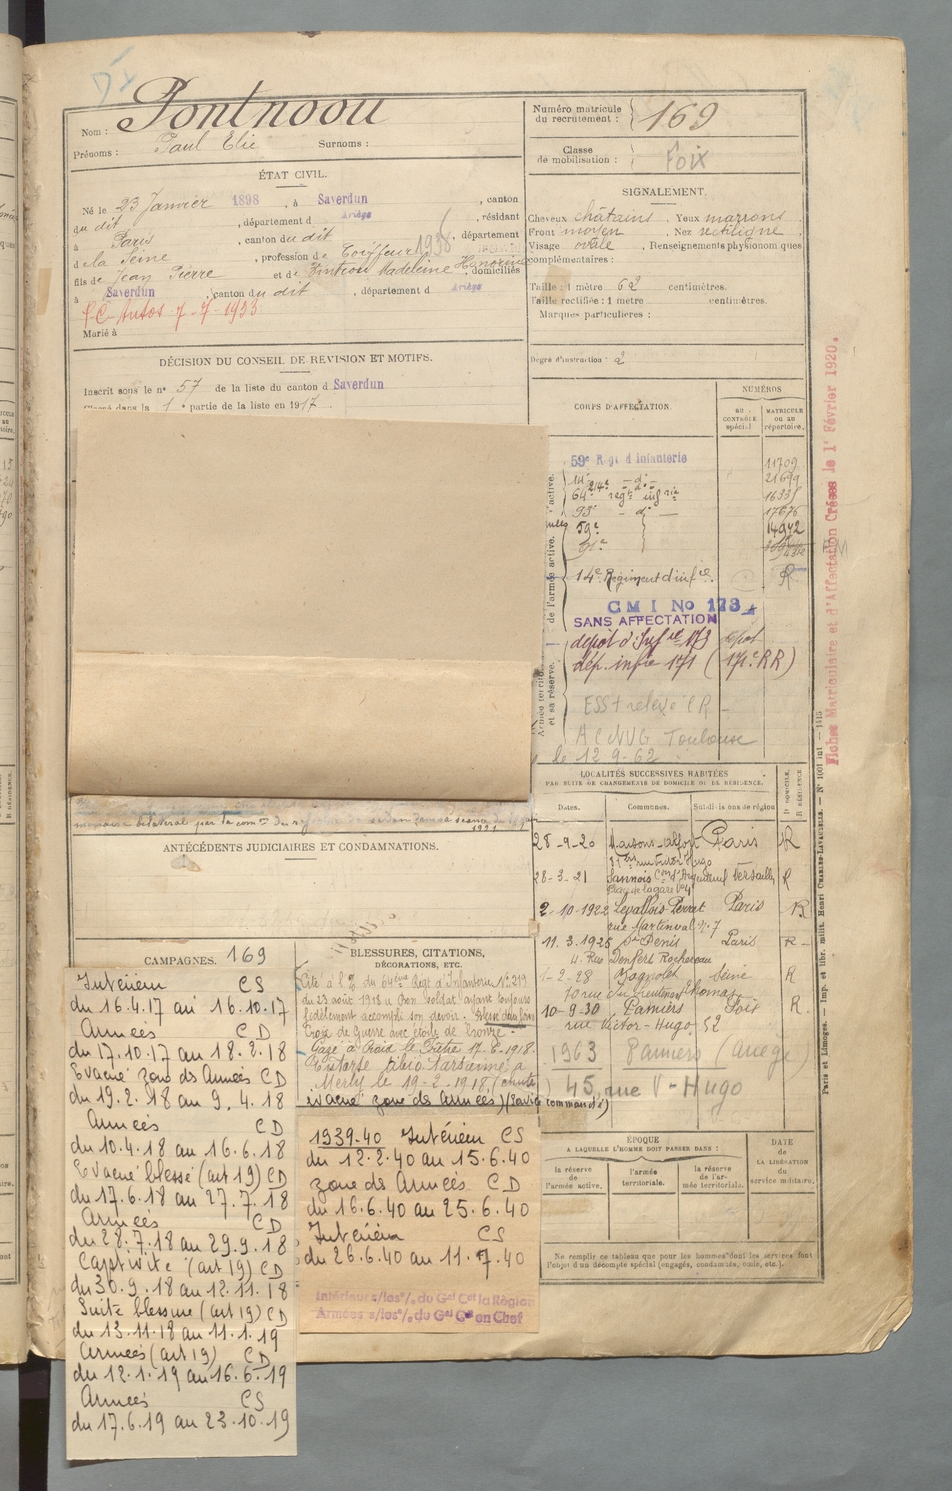 Nom : Pontnoou
Prénoms : Paul Elie Surnoms :
Numéro matricule du recrutement : 169
Classe de mobilisation : Foix
ÉTAT CIVIL.
Né le 23 Janvier 1898, à Saverdun, canton
du dit, département d Ariège, résidant
à Paris, canton du dit, département
d la Seine, profession de Coiffeur 1938
fils de Jean Pierre et de Madeleine Honorine domiciliés
à Saverdun, canton du dit, département d Ariège
Autos 7-7-1933
Marié à
SIGNALEMENT.
Cheveux châtains. Yeux marrons
Front moyen, Nez rectiligne
Visage ovale, Renseignements physionomiques
complémentaires :
Taille : 1 mètre 62 centimètres.
Taille rectifiée : 1 mètre centimètres.
Marques particulières :
Degré d'instruction : 2
DÉCISION DU CONSEIL DE REVISION ET MOTIFS.
Inscrit sous le n° 57 de la liste du canton d Saverdun
classé dans la 1e partie de la liste en 1917
CORPS D'AFFECTATION.
NUMÉROS
AU CONTRÔLE spécial
MATRICULE OU AU répertoire.
59e Regt d Infanterie 11709
14e 21699
64e regt infrie
93e - do - 17676
59e 14942
14e Régiment d'infie R
CMI No 173
SANS AFFECTATION
dépôt d'Infie 173 dépôt
dép. infie 171 (171e RR)
Toulouse
le 12-9-62
Armée territ. et sa réserve.
de l'armée active.
Fiches Matriculaire et d'Affectation Créées le 1r Février 1920.
ANTÉCÉDENTS JUDICIAIRES ET CONDAMNATIONS.
LOCALITÉS SUCCESSIVES HABITÉES
PAR SUITE DE CHANGEMENTS DE DOMICILE OU DE RÉSIDENCE.
Dates. Communes. Subdivisions de région D DOMICILE. R RÉSIDENCE
28-9-20 Maisons-Alfort Paris R
rue Victor Hugo
28-3-21 Sannois Con d'Argenteuil Versailles R
Place de la gare No 4
2-10-1922 Levallois-Perret Paris R
rue Martinval No 7
11.3.1925 St Denis Paris R
4. Rue Denfert Rochereau
1-2-28 Bagnolet Seine R
70 rue du lieutenant Thomas
10-9-30 Pamiers Foix R.
rue Victor-Hugo, 52
1963 Pamiers (Ariège)
45, rue V-Hugo
CAMPAGNES. 169
Intérieur CS
du 16.4.17 au 16.10.17
Armées CD
du 17.10.17 au 18.2.18
Evacué zone des Armées CD
du 19.2.18 au 9.4.18
Armées CD
du 10.4.18 au 16.6.18
Evacué blessé (art 19) CD
du 17.6.18 au 27.7.18
Armées CD
du 28.7.18 au 29.9.18
Captivité (art 19) CD
du 30.9.18 au 12.11.18
Suite blessure (art 19) CD
du 13.11.18 au 11.1.19
Armées (art 19) CD
du 12.1.19 au 16.6.19
Armées CS
du 17.6.19 au 23.10.19
BLESSURES, CITATIONS,
DÉCORATIONS, ETC.
Cité à l'O. du 64ème Régt d'Infanterie No 219
du 23 août 1918 « Bon soldat ayant toujours
fidèlement accompli son devoir.
Croix de Guerre avec étoile de bronze.
Gazé à Croix le Prêtre 17.6.1918.
Entorse tibio tarsienne à
Merly le 19-2-1918 (chute
évacué zone des Armées) (Service commandé)
1939-40 Intérieur CS
du 12.2.40 au 15.6.40
zone des Armées CD
du 16.6.40 au 25.6.40
Intérieur CS
du 26.6.40 au 11.7.40
Intérieur s/les o/. du Gal Ct la Région
Armées s/les o/. du Gal Ct en Chef
ÉPOQUE
A LAQUELLE L'HOMME DOIT PASSER DANS :
la réserve de l'armée active.
l'armée territoriale.
la réserve de l'armée territoriale.
DATE DE LA LIBÉRATION du service militaire.
Ne remplir ce tableau que pour les hommes dont les services font
l'objet d'un décompte spécial (engagés, condamnés, omis, etc.).
Paris et Limoges. — Imp. et libr. milit. Henri CHARLES-LAVAUZELLE.